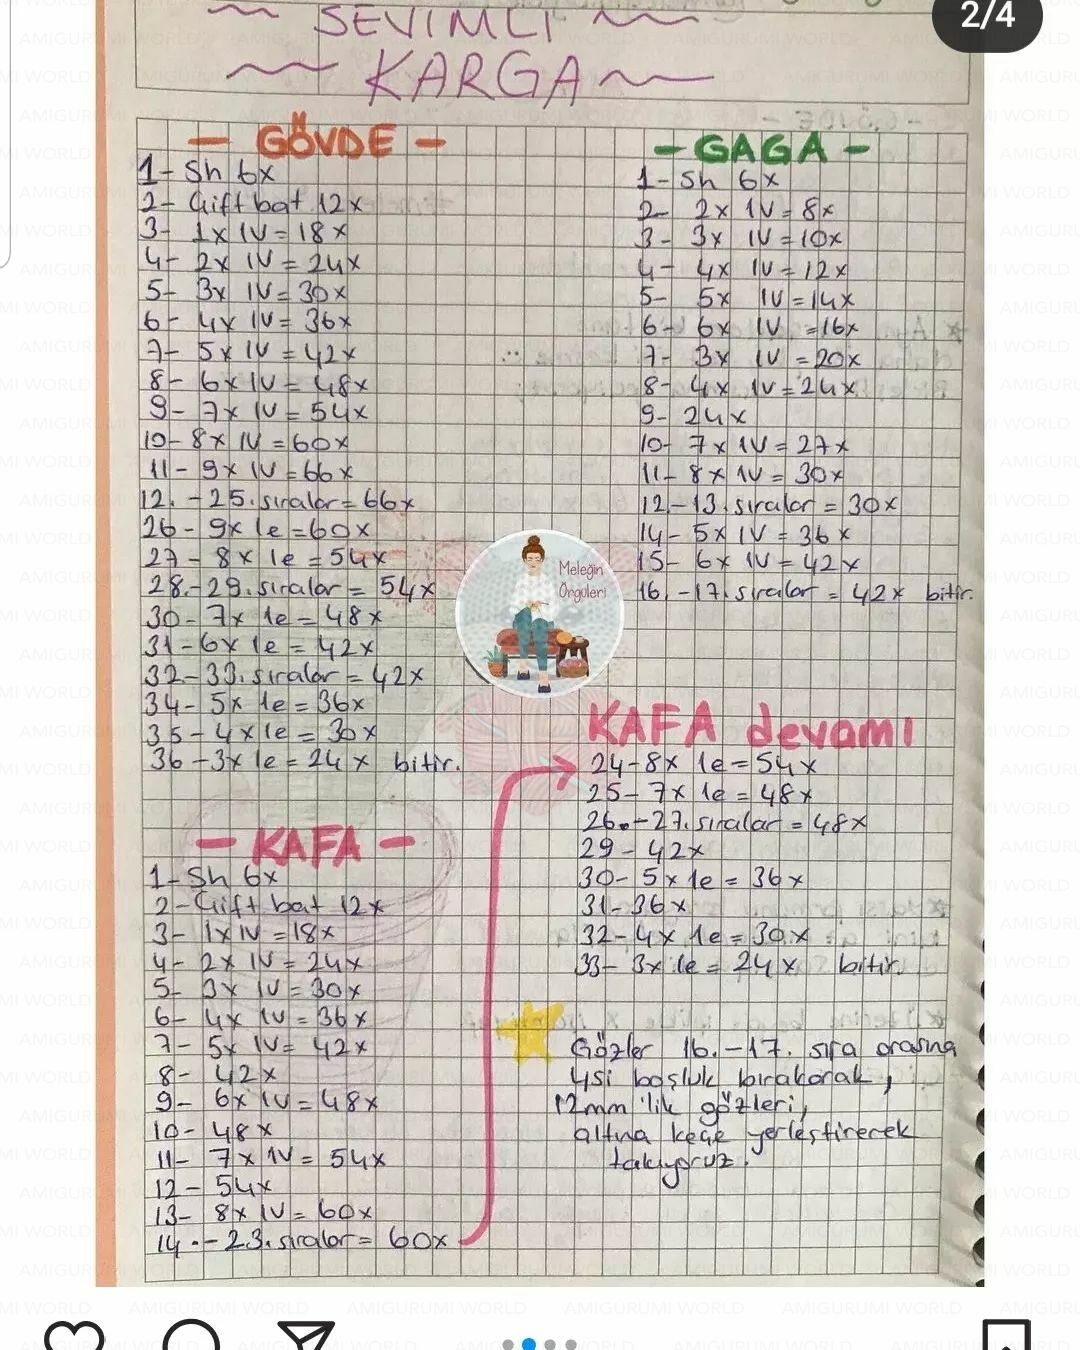 2/4
SEVİMLİ
KARGA
- GÖVDE -
1- Sh 6x
2- Çift bat 12x
3- 1x 1V = 18x
4- 2x 1V = 24x
5- 3x 1V = 30x
6- 4x 1V = 36x
7- 5x 1V = 42x
8- 6x 1V = 48x
9- 7x 1V = 54x
10- 8x 1V = 60x
11- 9x 1V = 66x
12. - 25. sıralar = 66x
26- 9x 1e = 60x
27- 8x 1e = 54x
28.-29. sıralar = 54x
30- 7x 1e = 48x
31- 6x 1e = 42x
32-33. sıralar = 42x
34- 5x 1e = 36x
35- 4x 1e = 30x
36- 3x 1e = 24x bitir.
- KAFA -
1- Sh 6x
2- Çift bat 12x
3- 1x 1V = 18x
4- 2x 1V = 24x
5- 3x 1V = 30x
6- 4x 1V = 36x
7- 5x 1V = 42x
8- 42x
9- 6x 1V = 48x
10- 48x
11- 7x 1V = 54x
12- 54x
13- 8x 1V = 60x
14.-23. sıralar = 60x
- GAGA -
1- Sh 6x
2- 2x 1V = 8x
3- 3x 1V = 10x
4- 4x 1V = 12x
5- 5x 1V = 14x
6- 6x 1V = 16x
7- 3x 1V = 20x
8- 4x 1V = 24x
9- 24x
10- 7x 1V = 27x
11- 8x 1V = 30x
12.-13. sıralar = 30x
14- 5x 1V = 36x
15- 6x 1V = 42x
16. -17. sıralar = 42x bitir.
Meleğin
Örgüleri
KAFA devamı
24- 8x 1e = 54x
25- 7x 1e = 48x
26.-27. sıralar = 48x
29- 42x
30- 5x 1e = 36x
31- 36x
32- 4x 1e = 30x
33- 3x 1e = 24x bitir.
Gözler 16.-17. sıra arasına
4si boşluk bırakarak,
12mm'lik gözleri,
altına keçe yerleştirerek
takıyoruz.
AMIGURUMI WORLD